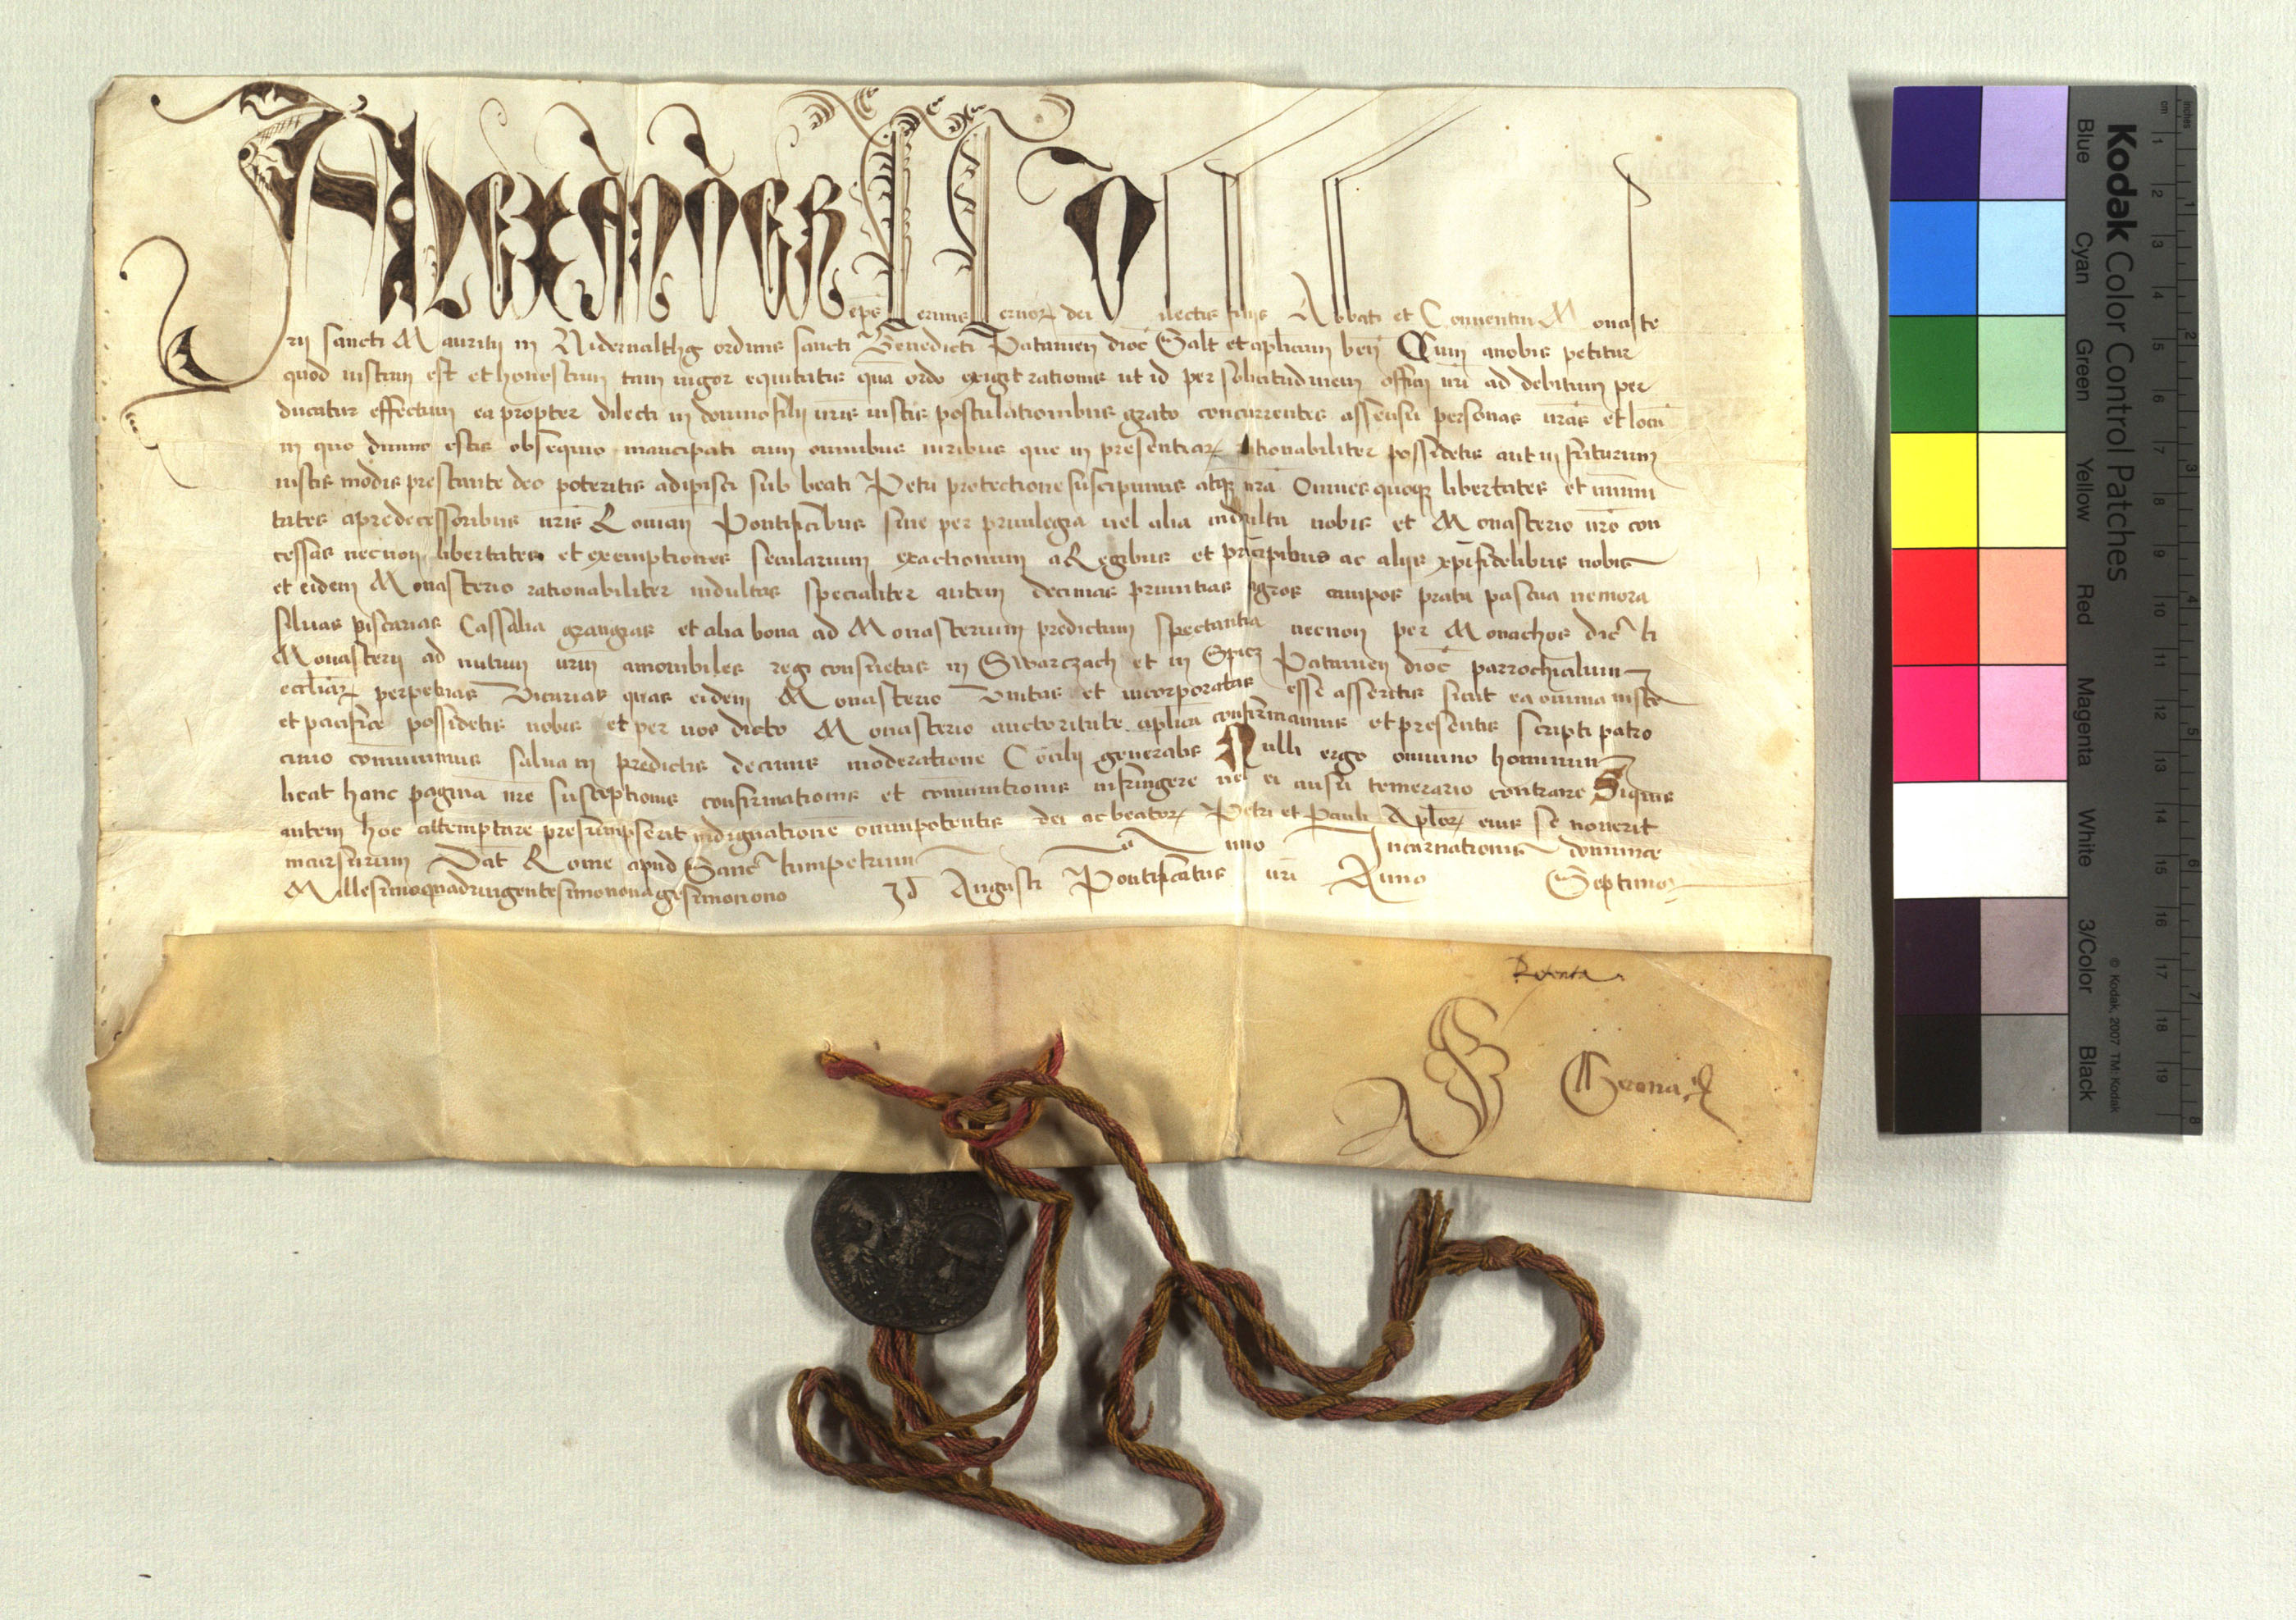 ALEXANDER eps Seruus Seruor dei Dilectis filijs Abbati et Conuentui Monaste
rij sancti Mauritij in Nidernalthg ordinis sancti Benedicti Patauien dioc Salt et aplicam ben Cum anobis petitur
quod iustum est et honestum tam uigor equitatis qua ordo exigit rationis ut id per solicitudinem officij nri ad debitum per
ducatur effectum ea propter dilecti in domino filij uris iustis postulationibus grato concurrentes assensu personas uras et locu
in quo diuino estis obsequio mancipati cum omnibus iuribus que in presentiar rationabiliter possidetis aut in futurum
iustis modis prestante deo poteritis adipisci sub beati Petri protectione suscipimus atq nra Omnes quoq libertates et immuni
tates apredecessoribus nris Roman Pontificibus siue per priuilegia uel alia indulta uobis et Monasterio uro con
cessas necnon libertates et exemptiones secularium exactionum aRegibus et principibus ac alijs xpifidelibus uobis
et eidem Monasterio rationabiliter indultas specialiter autem decimas primitias agros campos prata pascua nemora
siluas piscarias Cassalia grangias et alia bona ad Monasterium predictum spectantia necnon per Monachos dicti
Monasterij ad nutum urm amouibiles regi consuetas in Swarczach et in Spicz Patauien dioc parrochialium
eccliar perpetuas Vicarias quas eidem Monasterio Vnitas et incorporatas esse asseritis sicut ea omnia iuste
et pacifice possidetis uobis et per uos dicto Monasterio auctoritate aplica confirmamus et presentis scripti patro
cinio communimus salua in predictis decimis moderatione Cocilij generalis Nulli ergo omnino hominum
liceat hanc pagina nre susceptionis confirmationis et comunitionis infringere uel ei ausu temerario contraire Siquis
autem hoc attemptare presumpserit indignatione omnipotentis dei ac beator Petri et Pauli Aplor eius se nouerit
incursurum Dat Rome apud Sanctumpetrum Anno Incarnationis dominice
Millesimoquadringentesimononagesimonono Id Augusti Pontificatus nri Anno Septimo
Gerona
Kodak Color Control Patches
Blue Cyan Green Yellow Red Magenta White 3/Color Black
© Kodak, 2007 TM: Kodak
inches 1 2 3 4 5 6 7 8
cm 1 2 3 4 5 6 7 8 9 10 11 12 13 14 15 16 17 18 19